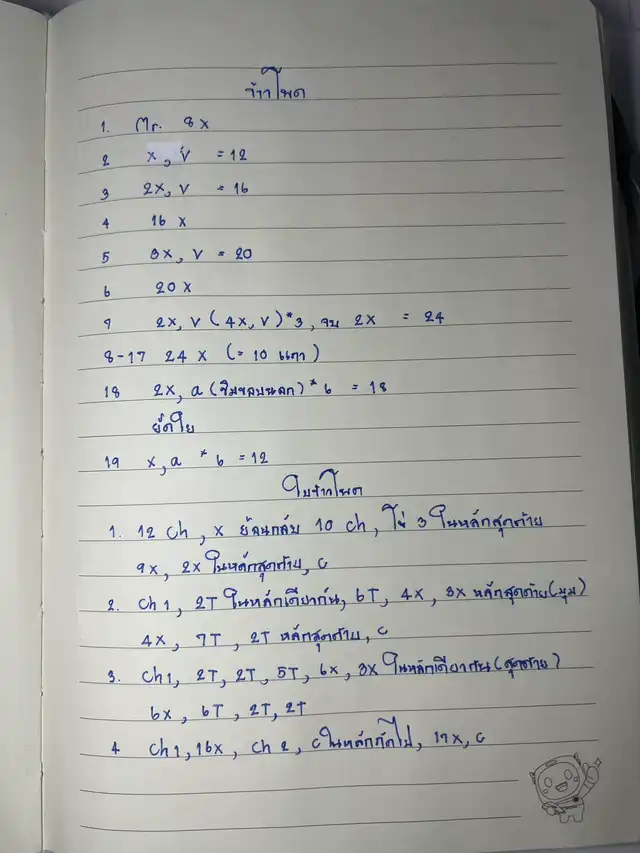 ข้าวโพด
1. Mr. 8x
2 x, v = 12
3 2x, v = 16
4 16 x
5 3x, v = 20
6 20 x
7 2x, v (4x, v)*3, จบ 2x = 24
8-17 24 x (= 10 แถว)
18 2x, a (ริมขอบนอก) * 6 = 18
ยัดใย
19 x, a * 6 = 12
ใบข้าวโพด
1. 12 ch, x ย้อนกลับ 10 ch, ใช่ 3 ในหลักสุดท้าย
9x, 2x ในหลักสุดท้าย, c
2. ch 1, 2T ในหลักเดียวกัน, 6T, 4x, 3x หลักสุดท้าย (มุม)
4x, 7T, 2T หลักสุดท้าย, c
3. ch 1, 2T, 2T, 5T, 6x, 3x ในหลักเดียวกัน (สุดท้าย)
6x, 6T, 2T, 2T
4 ch 1, 16x, ch 2, c ในหลักถัดไป, 17x, c